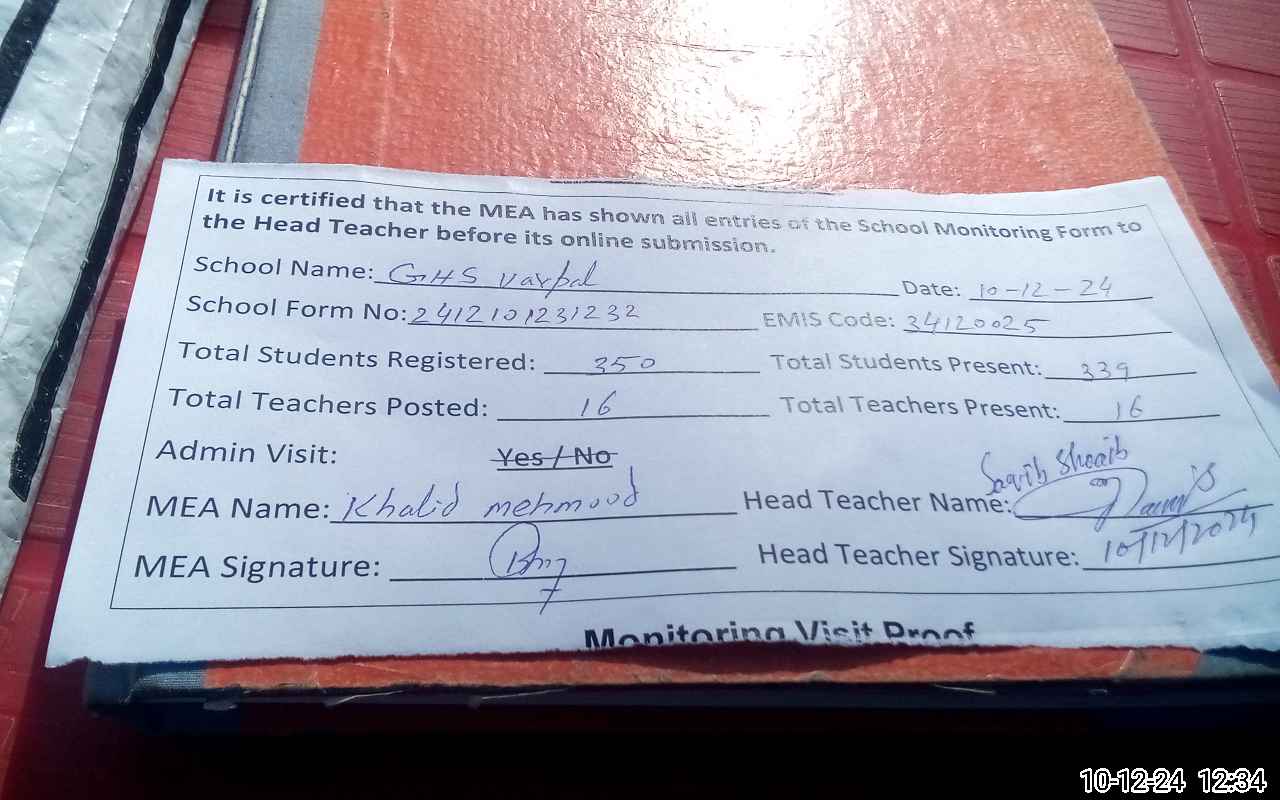 It is certified that the MEA has shown all entries of the School Monitoring Form to
the Head Teacher before its online submission.
School Name: GHS varpal Date: 10-12-24
School Form No: 2412101231232 EMIS Code: 34120025
Total Students Registered: 350 Total Students Present: 339
Total Teachers Posted: 16 Total Teachers Present: 16
Admin Visit: Yes / No
MEA Name: Khalid mehmood Head Teacher Name: Shoaib
MEA Signature: Head Teacher Signature: 10/12/2024
Monitoring Visit Proof
10-12-24 12:34